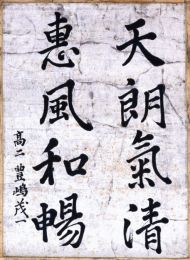 天朗氣清
惠風和暢
高二 豊嶋茂一